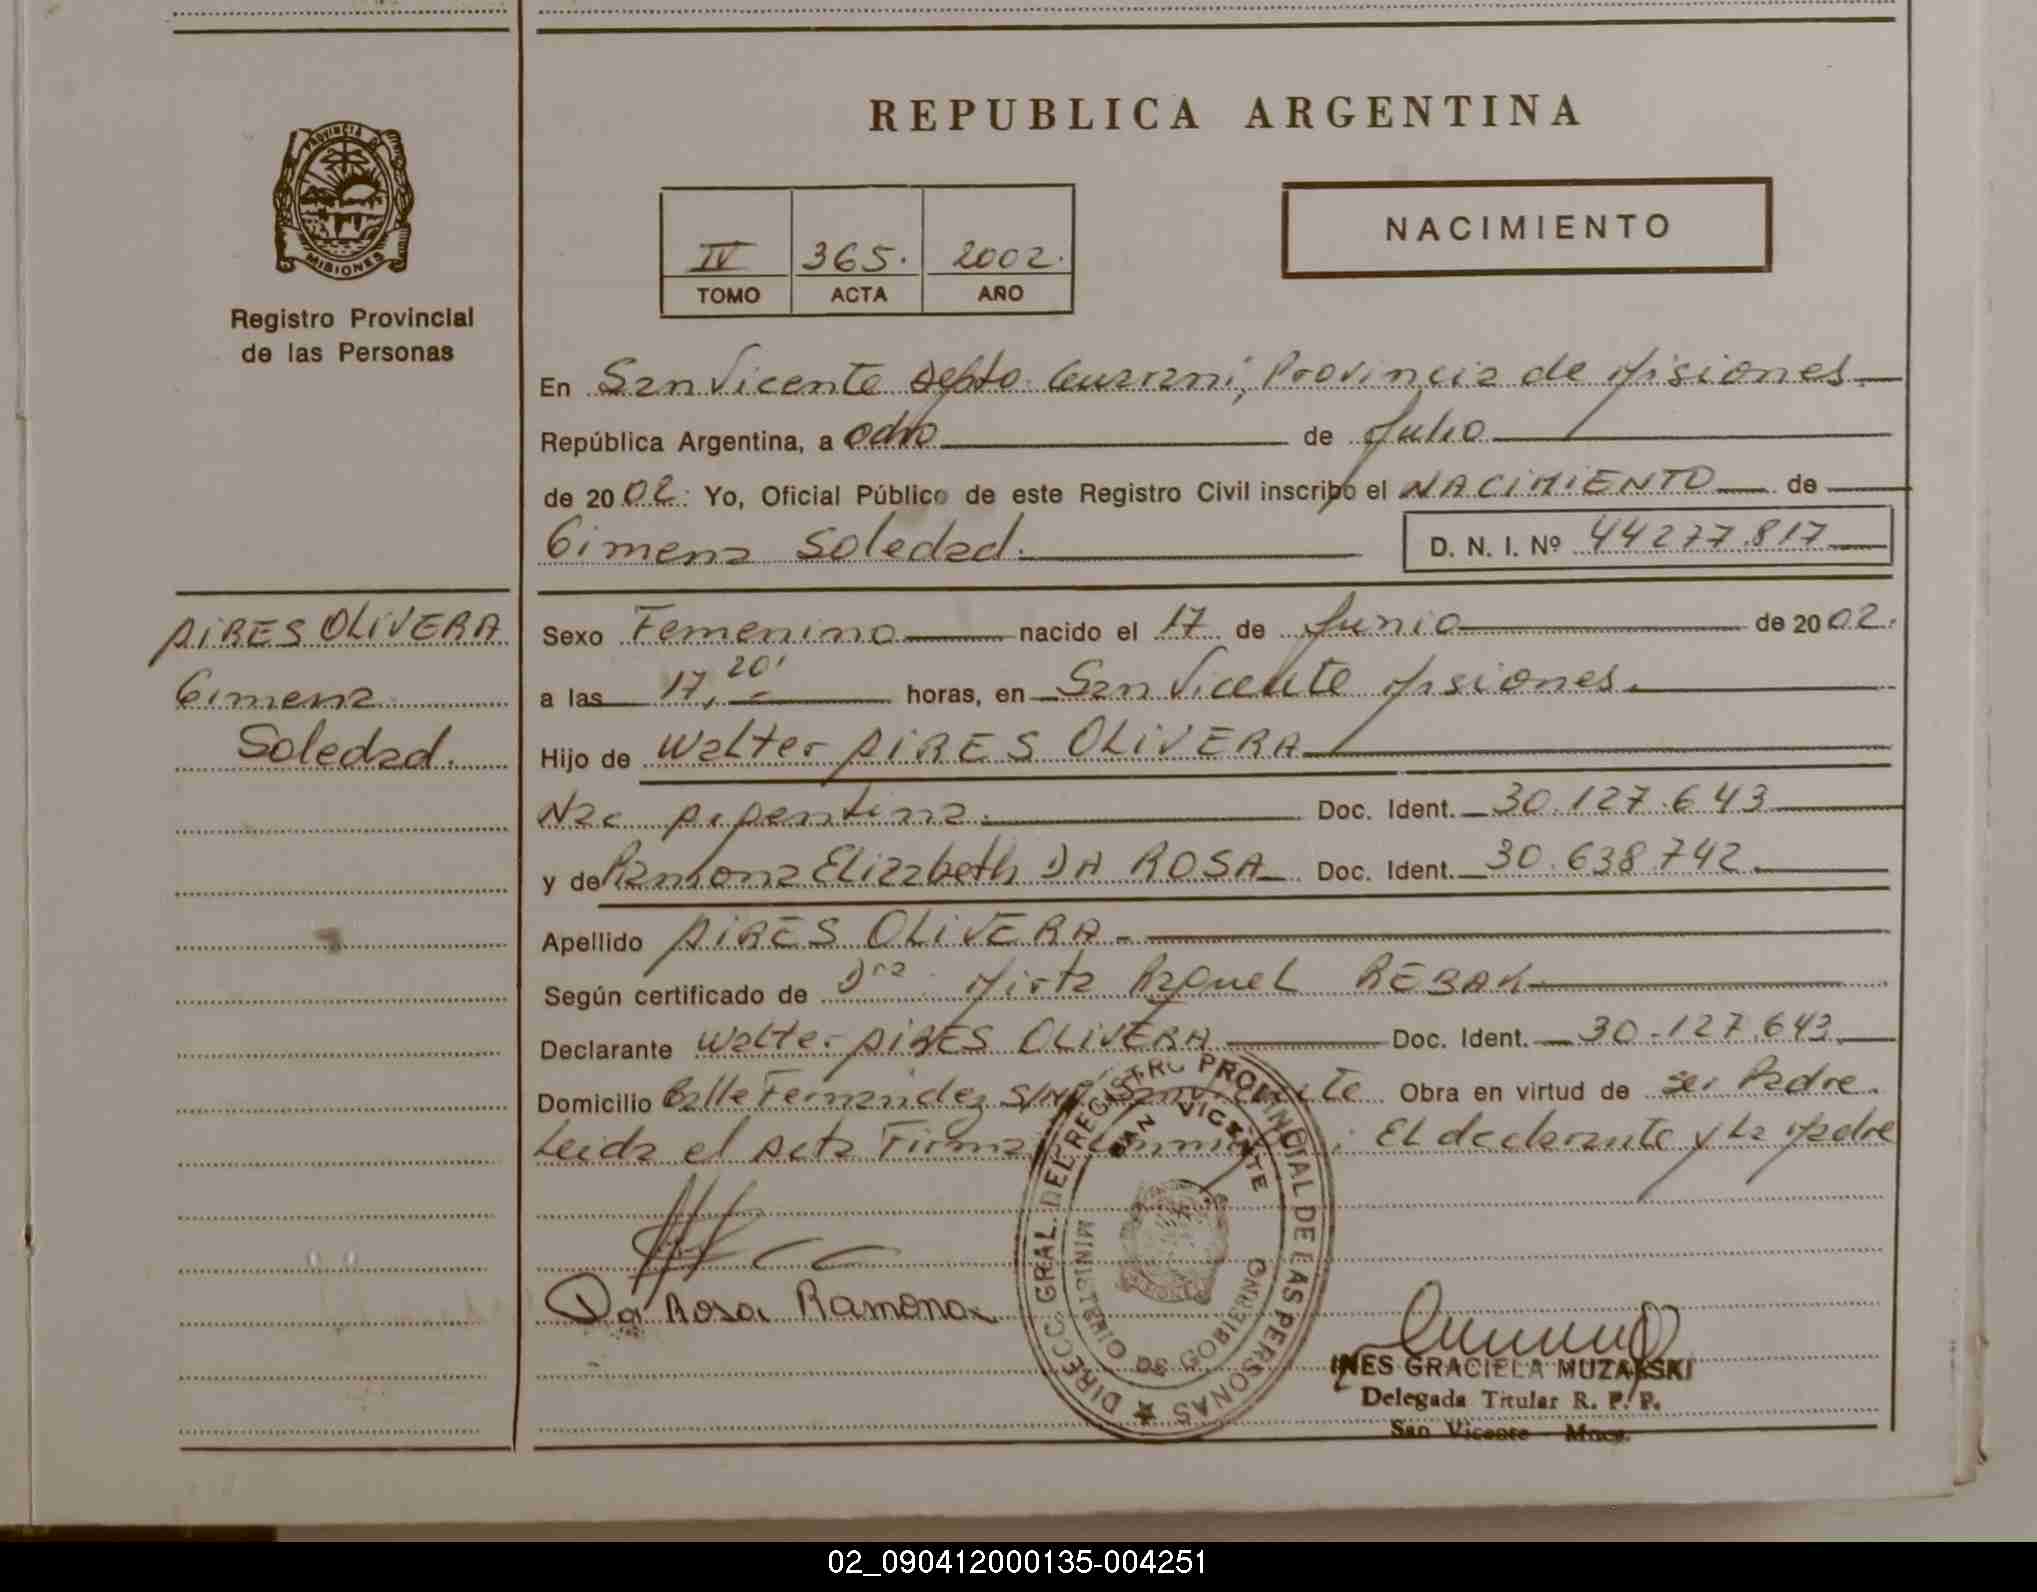 REPUBLICA ARGENTINA
PROVINCIA DE
MISIONES
Registro Provincial
de las Personas
NACIMIENTO
IV 365. 2002.
TOMO ACTA AÑO
En San Vicente Depto Guarani, Provincia de Misiones.
República Argentina, a ocho de Julio
de 2002. Yo, Oficial Público de este Registro Civil inscribo el NACIMIENTO de
Gimena Soledad. D. N. I. Nº 44277.817
PIRES OLIVERA
Gimena
Soledad.
Sexo Femenino nacido el 17 de Junio de 2002.
a las 17,20' horas, en San Vicente Misiones.
Hijo de Walter PIRES OLIVERA
Nac Argentina. Doc. Ident. 30.127.643
y de Ramona Elizabeth DA ROSA Doc. Ident. 30.638.742.
Apellido PIRES OLIVERA
Según certificado de Dra. Mirta Raquel
Declarante Walter PIRES OLIVERA Doc. Ident. 30.127.643.
Domicilio Calle Fernandez S/Nº San Vicente Obra en virtud de ser Padre.
Leida el Acta Firman : El declarante y La Madre
Da Rosa Ramona
DIRECC. GRAL. DEL REGISTRO PROVINCIAL DE LAS PERSONAS
SAN VICENTE
MINISTERIO DE GOBIERNO
INES GRACIELA MUZALSKI
Delegada Titular R. P. P.
San Vicente Mnes.
02_090412000135-004251